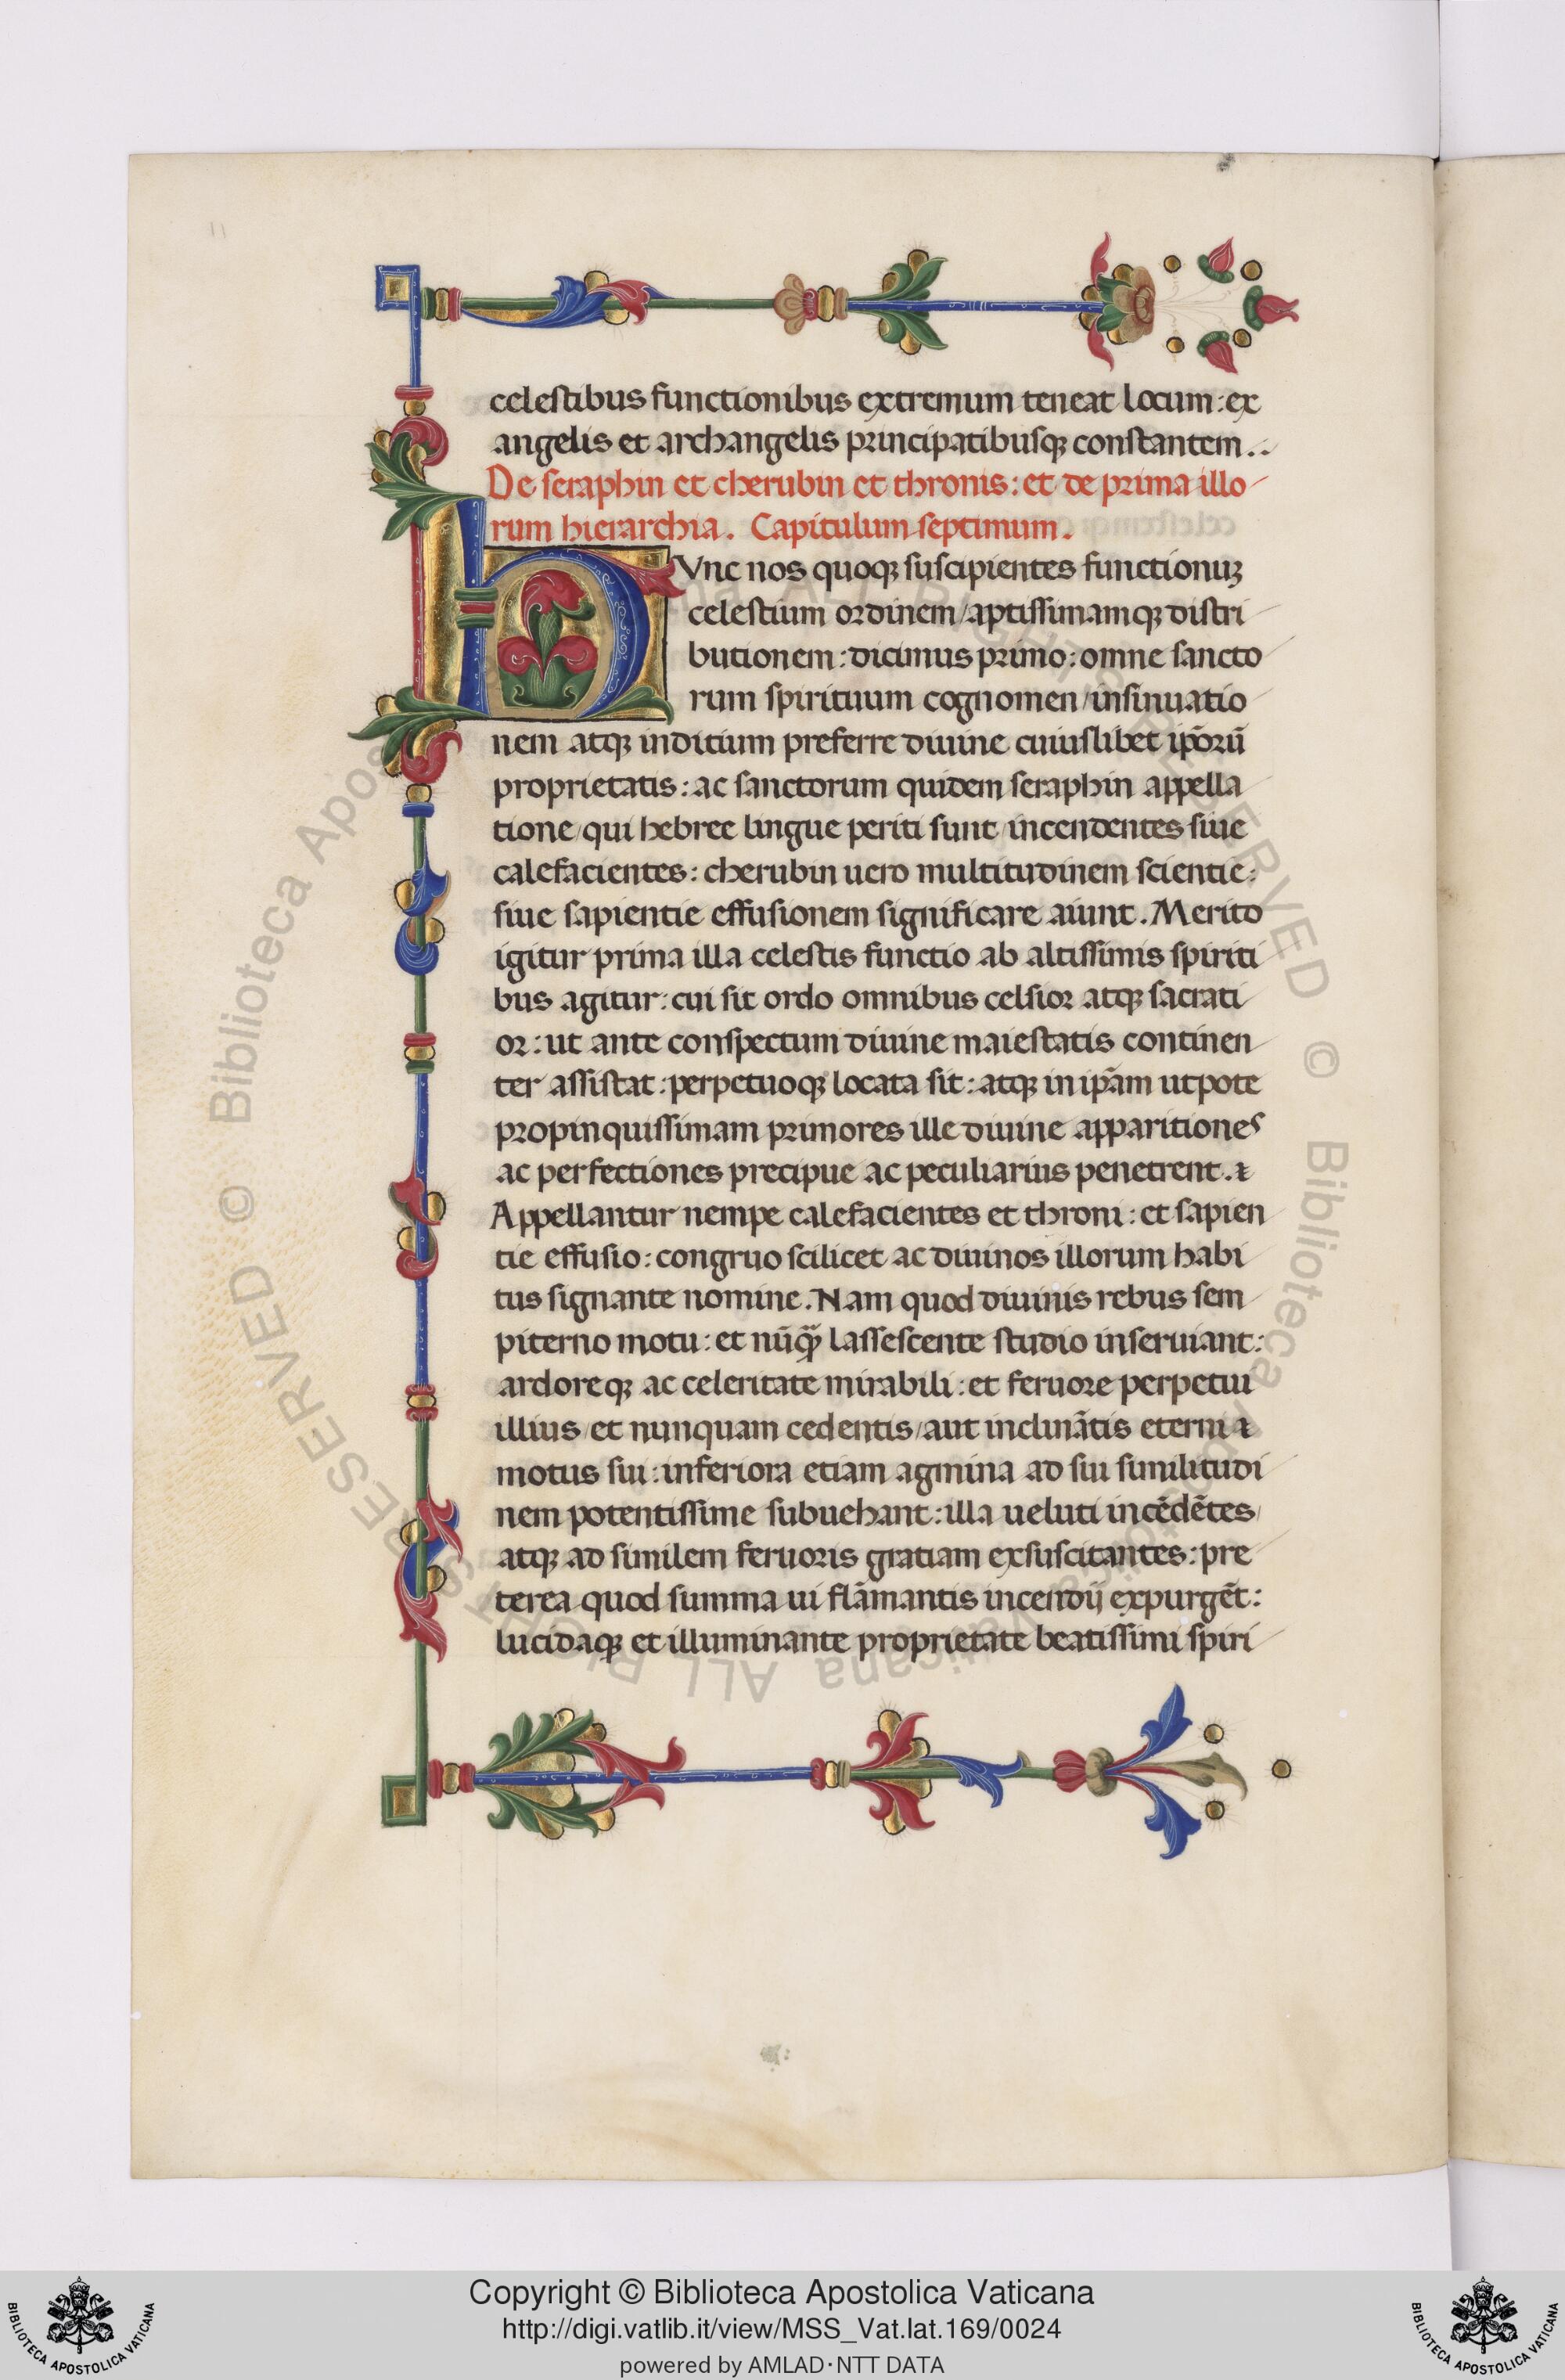 celestibus functionibus extremum teneat locum: ex
angelis et archangelis principatibusqꝫ constantem..
De seraphin et cherubin et thronis: et de prima illo-
rum hierarchia. Capitulum septimum.
HVnc nos quoqꝫ suscipientes functionuꝫ
celestium ordinem/ aptissimamqꝫ distri-
butionem: dicimus primo: omne sancto-
rum spirituum cognomen/ insinuatio-
nem atqꝫ inditium preferre diuine cuiuslibet ip̄orū
proprietatis: ac sanctorum quidem seraphin appella-
tione/ qui hebree lingue periti sunt/ incendentes siue
calefacientes: cherubin uero multitudinem scientie:
siue sapientie effusionem significare aiunt. Merito
igitur prima illa celestis functio ab altissimis spiriti-
bus agitur: cui sit ordo omnibus celsior atqꝫ sacrati-
or: ut ante conspectum diuine maiestatis continen-
ter assistat: perpetuoqꝫ locata sit: atqꝫ in ip̄am utpote
propinquissimam primores ille diuine apparitiones
ac perfectiones precipue ac peculiarius penetrent. ⁊
Appellantur nempe calefacientes et throni: et sapien-
tie effusio: congruo scilicet ac diuinos illorum habi-
tus signante nomine. Nam quod diuinis rebus sem-
piterno motu: et nūqꝫ̄ lassescente studio inseruiant:
ardoreqꝫ ac celeritate mirabili: et feruore perpetui
illius/ et nunquam cedentis/ aut inclinātis eterni ⁊
motus sui: inferiora etiam agmina ad sui similitudi-
nem potentissime subuehant: illa ueluti incēdētes/
atqꝫ ad similem feruoris gratiam exsuscitantes: pre-
terea quod summa ui flāmantis incendij expurgēt:
lucidaqꝫ et illuminante proprietate beatissimi spiri-
Copyright © Biblioteca Apostolica Vaticana
http://digi.vatlib.it/view/MSS_Vat.lat.169/0024
powered by AMLAD·NTT DATA
BIBLIOTECA APOSTOLICA VATICANA
BIBLIOTECA APOSTOLICA VATICANA